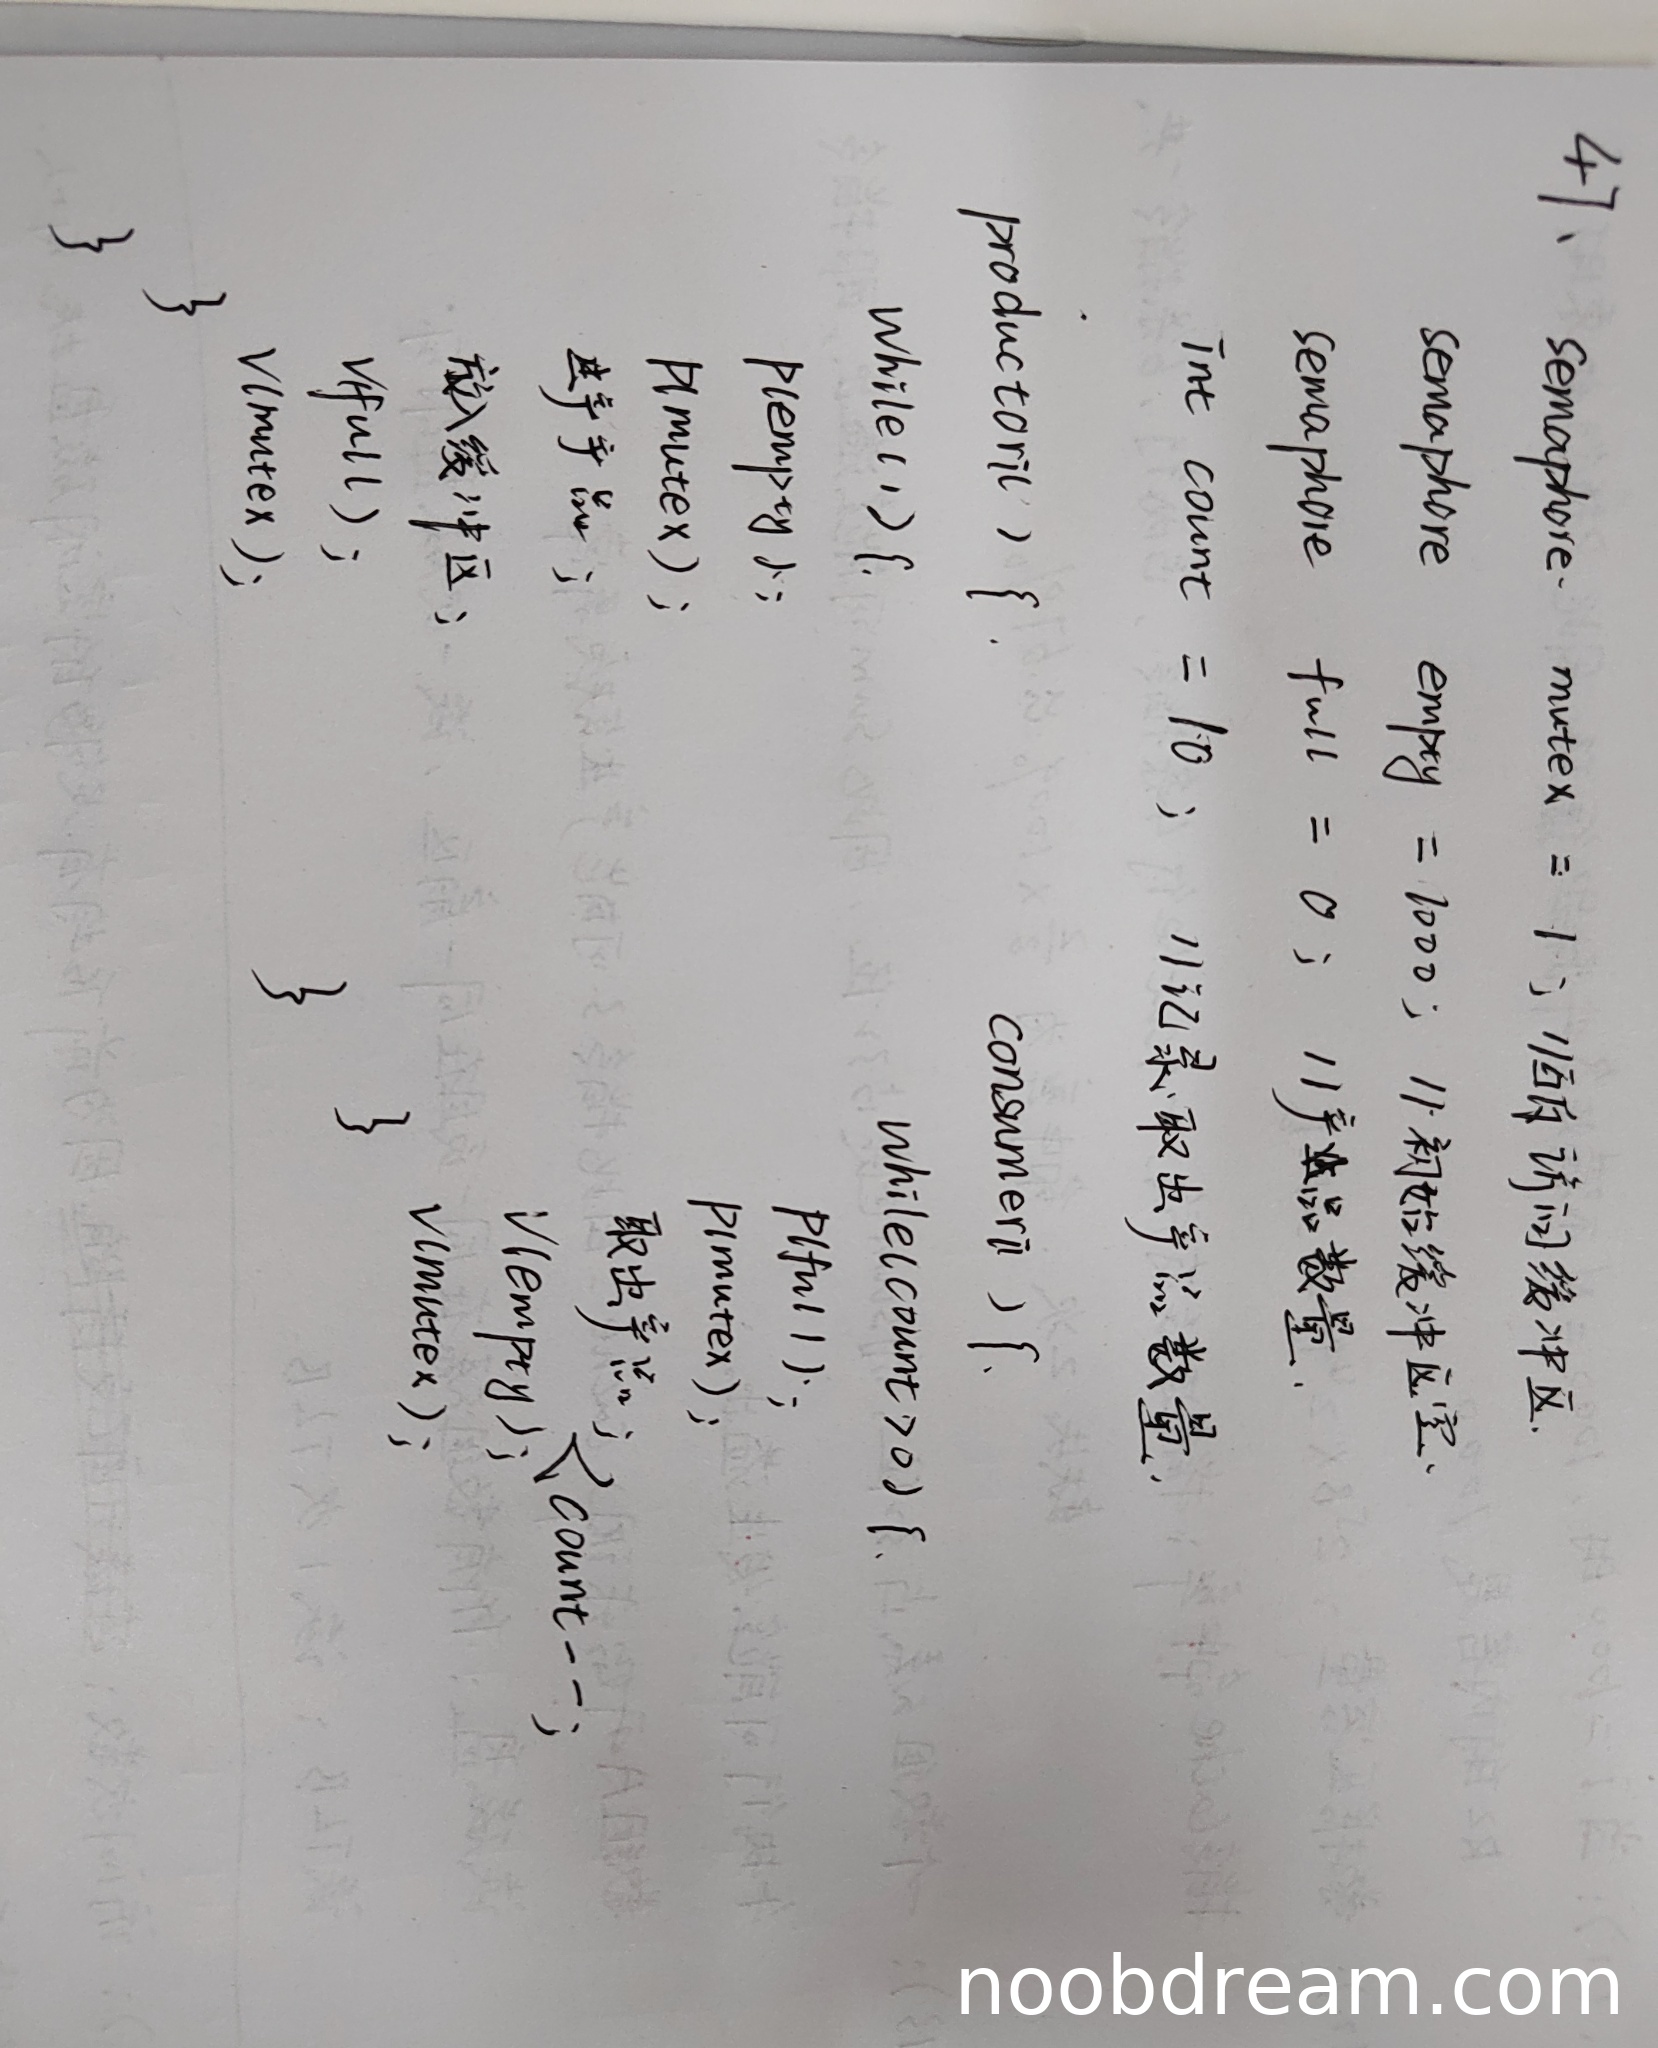 47、
semaphore mutex = 1; //互斥访问缓冲区.
semaphore empty = 1000; //初始缓冲区空.
semaphore full = 0; //产品数量.
int count = 10; //记录取出产品数量.
productori( ) {
while(1){
P(empty);
P(mutex);
生产产品;
放入缓冲区;
V(full);
V(mutex);
}
}
consumeri( ) {
while(count>0){
P(full);
P(mutex);
取出产品;
count--;
V(empty);
V(mutex);
}
}
noobdream.com